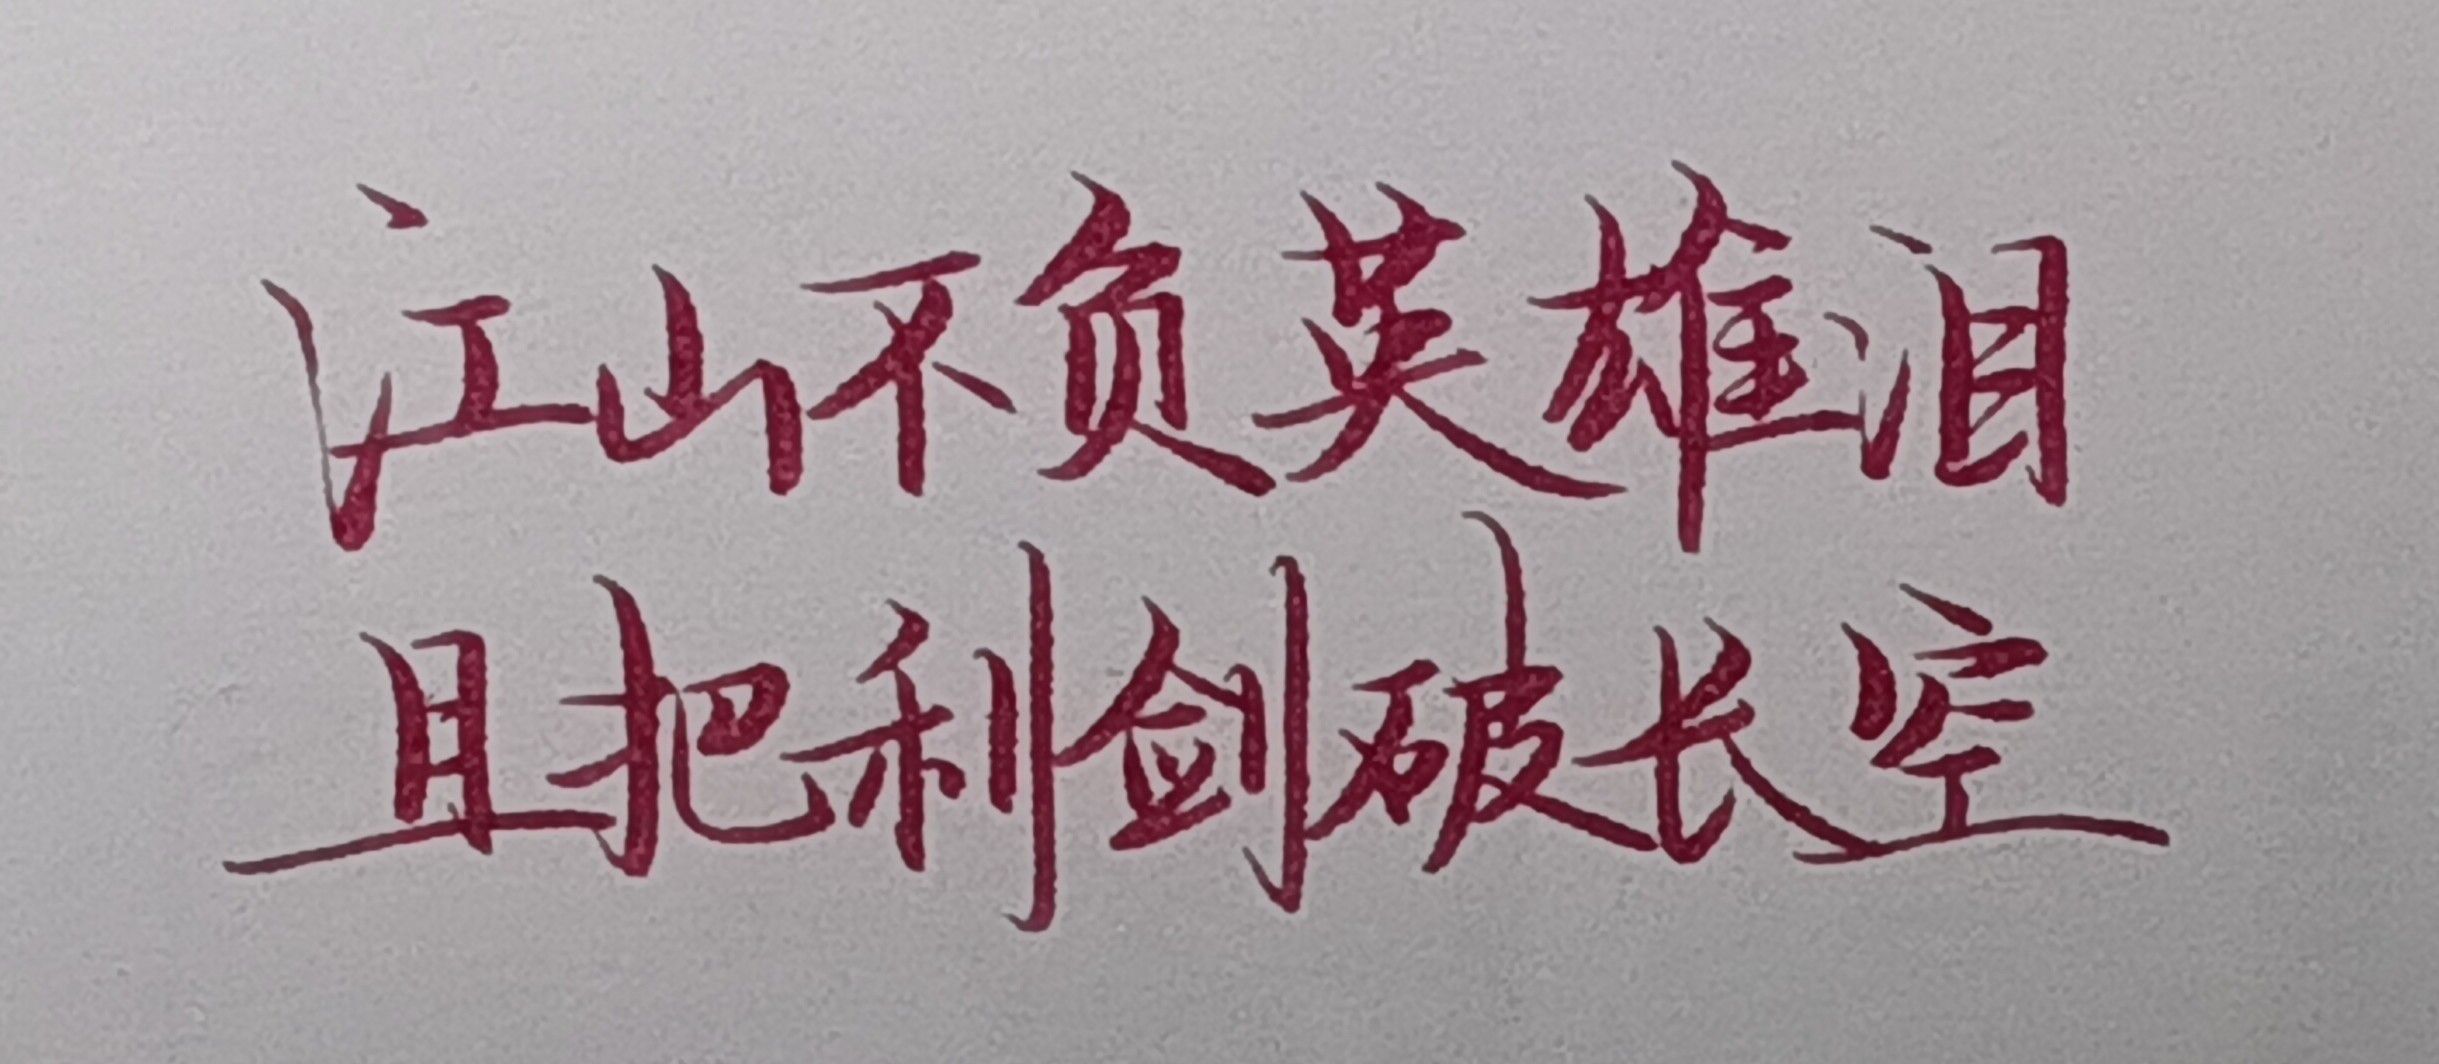 江山不负英雄泪
且把利剑破长空